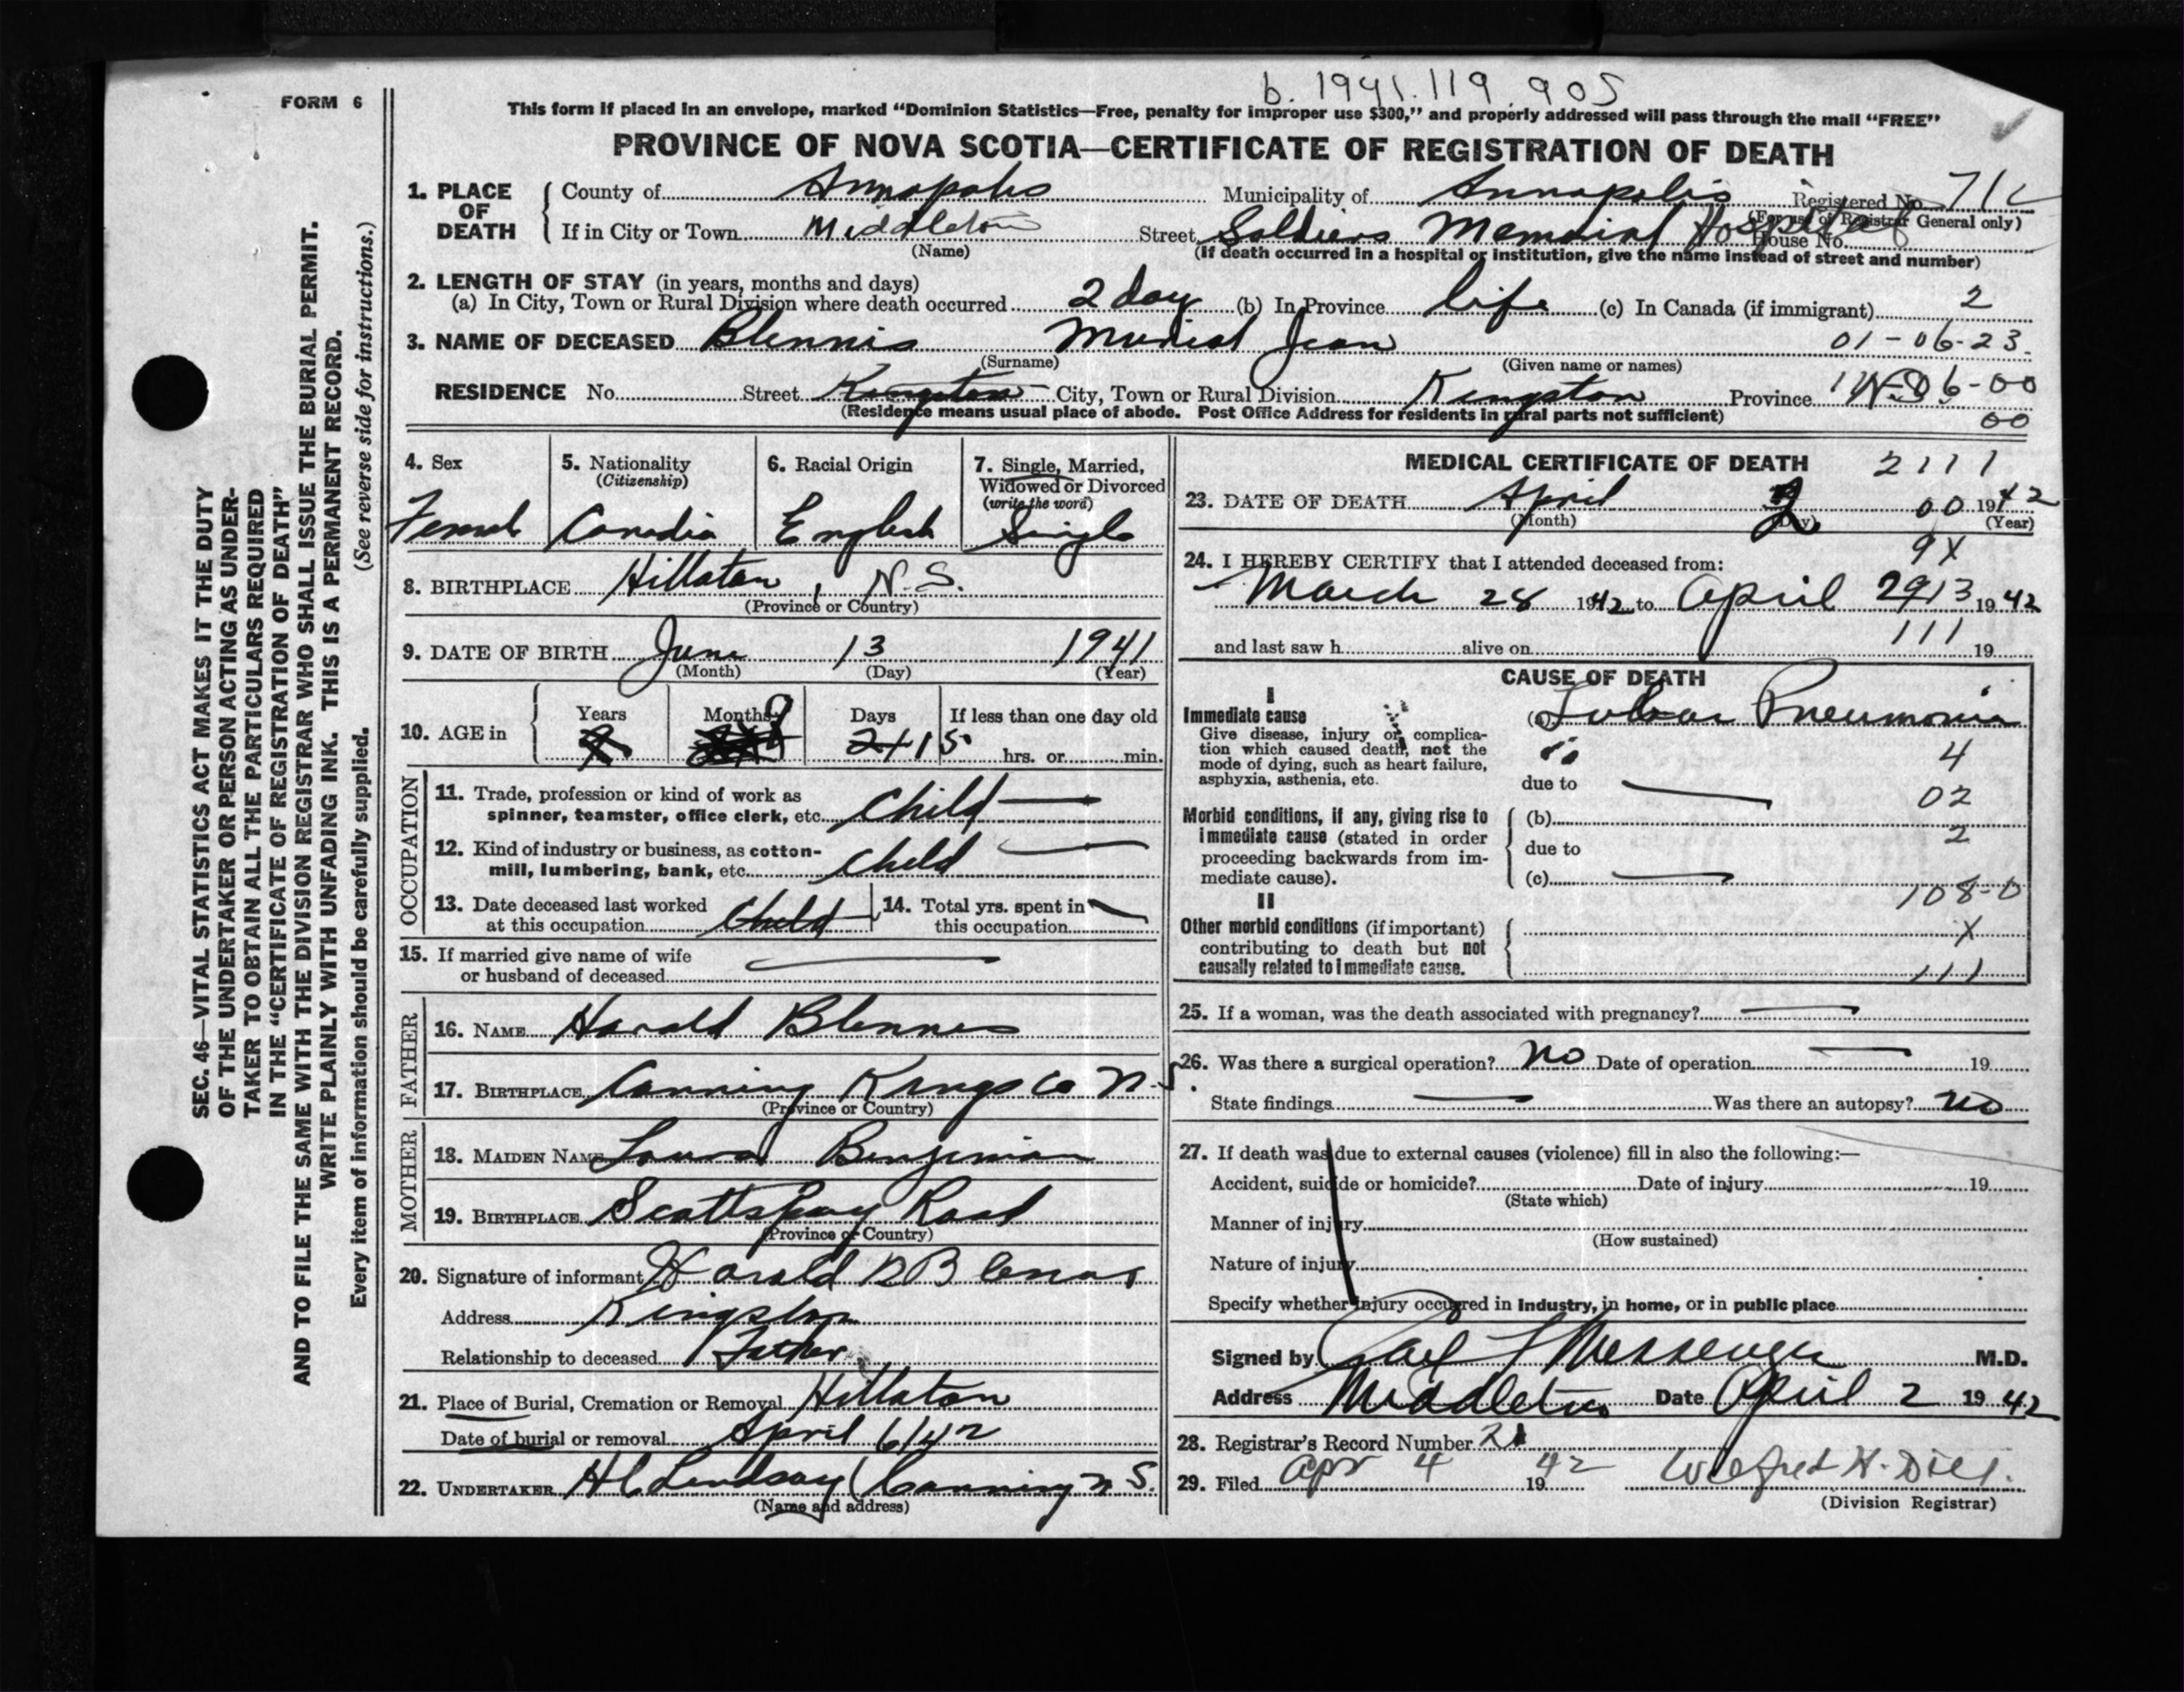 b. 1941.119.905
FORM 6
This form if placed in an envelope, marked "Dominion Statistics—Free, penalty for improper use $300," and properly addressed will pass through the mail "FREE"
PROVINCE OF NOVA SCOTIA—CERTIFICATE OF REGISTRATION OF DEATH
1. PLACE OF DEATH County of Annapolis Municipality of Annapolis Registered No.
(For use of Registrar General only)
If in City or Town Middleton Street Soldiers Memorial Hospital House No.
(Name) (If death occurred in a hospital or institution, give the name instead of street and number)
2. LENGTH OF STAY (in years, months and days)
(a) In City, Town or Rural Division where death occurred 2 day (b) In Province life (c) In Canada (if immigrant) 2
3. NAME OF DECEASED Blennis Muriel Jean 01-06-23
(Surname) (Given name or names)
RESIDENCE No. Street Kingston City, Town or Rural Division Kingston Province
(Residence means usual place of abode. Post Office Address for residents in rural parts not sufficient) 00
4. Sex 5. Nationality 6. Racial Origin 7. Single, Married,
(Citizenship) Widowed or Divorced
(write the word)
Female Canadia English Single
8. BIRTHPLACE Hillaton, N.S.
(Province or Country)
9. DATE OF BIRTH June 13 1941
(Month) (Day) (Year)
10. AGE in Years Months Days If less than one day old
hrs. or min.
OCCUPATION
11. Trade, profession or kind of work as
spinner, teamster, office clerk, etc. Child
12. Kind of industry or business, as cotton-
mill, lumbering, bank, etc. Child
13. Date deceased last worked 14. Total yrs. spent in
at this occupation Child this occupation
15. If married give name of wife
or husband of deceased
FATHER
16. NAME Harald Blennes
17. BIRTHPLACE Canning Kings Co N.S.
(Province or Country)
MOTHER
18. MAIDEN NAME Laura Benjimin
19. BIRTHPLACE Scotts Bay Road
(Province or Country)
20. Signature of informant Harald
Address Kingston
Relationship to deceased Father
21. Place of Burial, Cremation or Removal Hillaton
Date of burial or removal April 6/42
22. UNDERTAKER H C Lindsay Canning N S.
(Name and address)
MEDICAL CERTIFICATE OF DEATH 2111
23. DATE OF DEATH April 2 00 1942
(Month) (Day) (Year)
9X
24. I HEREBY CERTIFY that I attended deceased from:
March 28 1942 to April 2 1942
and last saw h alive on 111 19
CAUSE OF DEATH
I
Immediate cause (a) Lobar Pneumonia
Give disease, injury or complica-
tion which caused death, not the 4
mode of dying, such as heart failure,
asphyxia, asthenia, etc. due to 02
Morbid conditions, if any, giving rise to (b)
immediate cause (stated in order 2
proceeding backwards from im- due to
mediate cause). (c)
108-0
II
Other morbid conditions (if important) X
contributing to death but not
causally related to immediate cause. 111
25. If a woman, was the death associated with pregnancy?
26. Was there a surgical operation? No Date of operation 19
State findings Was there an autopsy? No
27. If death was due to external causes (violence) fill in also the following:—
Accident, suicide or homicide? Date of injury 19
(State which)
Manner of injury
(How sustained)
Nature of injury
Specify whether injury occurred in industry, in home, or in public place
Signed by Messenger M.D.
Address Middleton Date April 2 1942
28. Registrar's Record Number 21
29. Filed Apr 4 1942 Wilfred H. Dill.
(Division Registrar)
SEC. 46—VITAL STATISTICS ACT MAKES IT THE DUTY
OF THE UNDERTAKER OR PERSON ACTING AS UNDER-
TAKER TO OBTAIN ALL THE PARTICULARS REQUIRED
IN THE "CERTIFICATE OF REGISTRATION OF DEATH"
AND TO FILE THE SAME WITH THE DIVISION REGISTRAR WHO SHALL ISSUE THE BURIAL PERMIT.
WRITE PLAINLY WITH UNFADING INK. THIS IS A PERMANENT RECORD.
Every item of information should be carefully supplied. (See reverse side for instructions.)